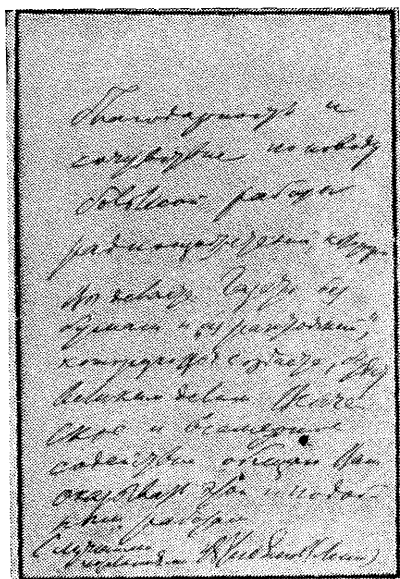 благодарность и
сочувствие по поводу
большой работы
радиоизобретений, которую
Вы делаете. Газета без
бумаги и „без расстояний“,
которую Вы создаете, будет
великим делом. Всяче-
ское и всемерное
содействие обещаю Вам
оказывать этой и подоб-
ным работам.
С лучшими
пожеланиями В. Ульянов (Ленин)